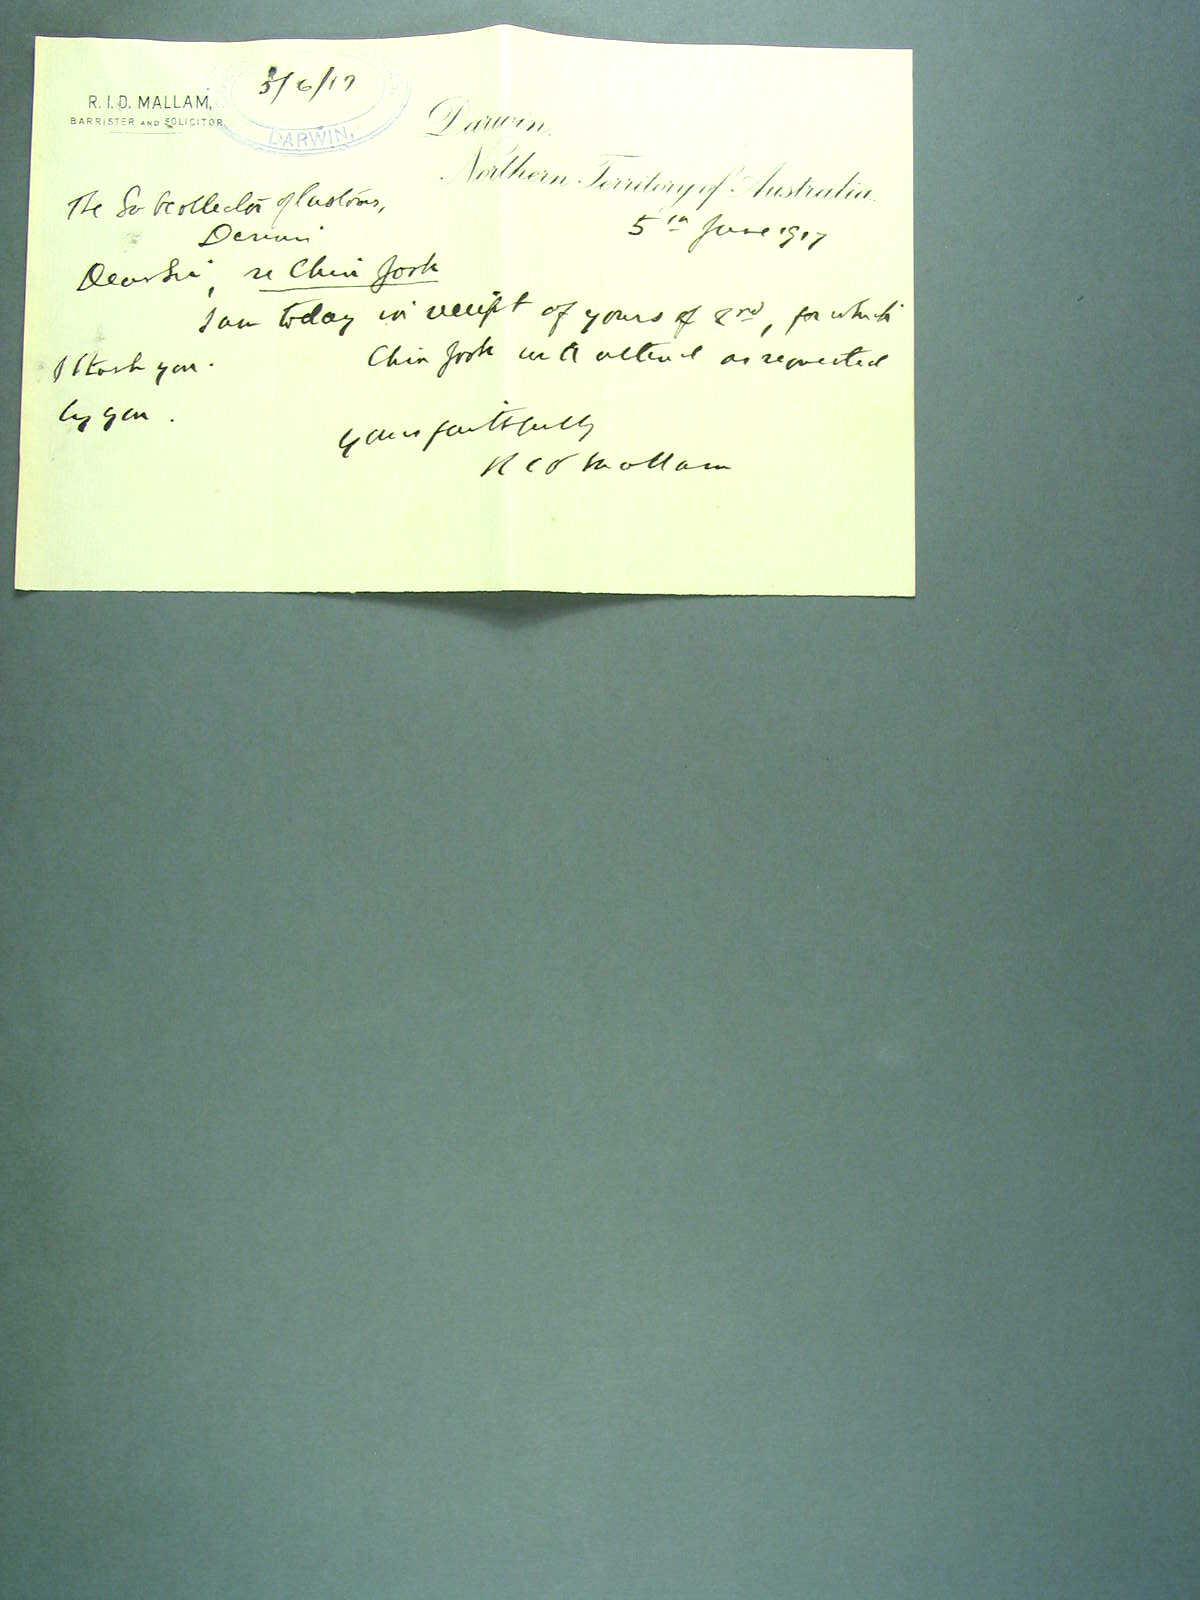 R. I. D. MALLAM,
BARRISTER AND SOLICITOR
5/6/17
DARWIN.
Darwin,
Northern Territory of Australia
5th June 1917
The Sub Collector of Customs,
Darwin
Dear Sir, re Chin Fook
I am today in receipt of yours of 2nd, for which
I thank you. Chin Fook will attend as requested
by you.
Yours faithfully
R I D Mallam